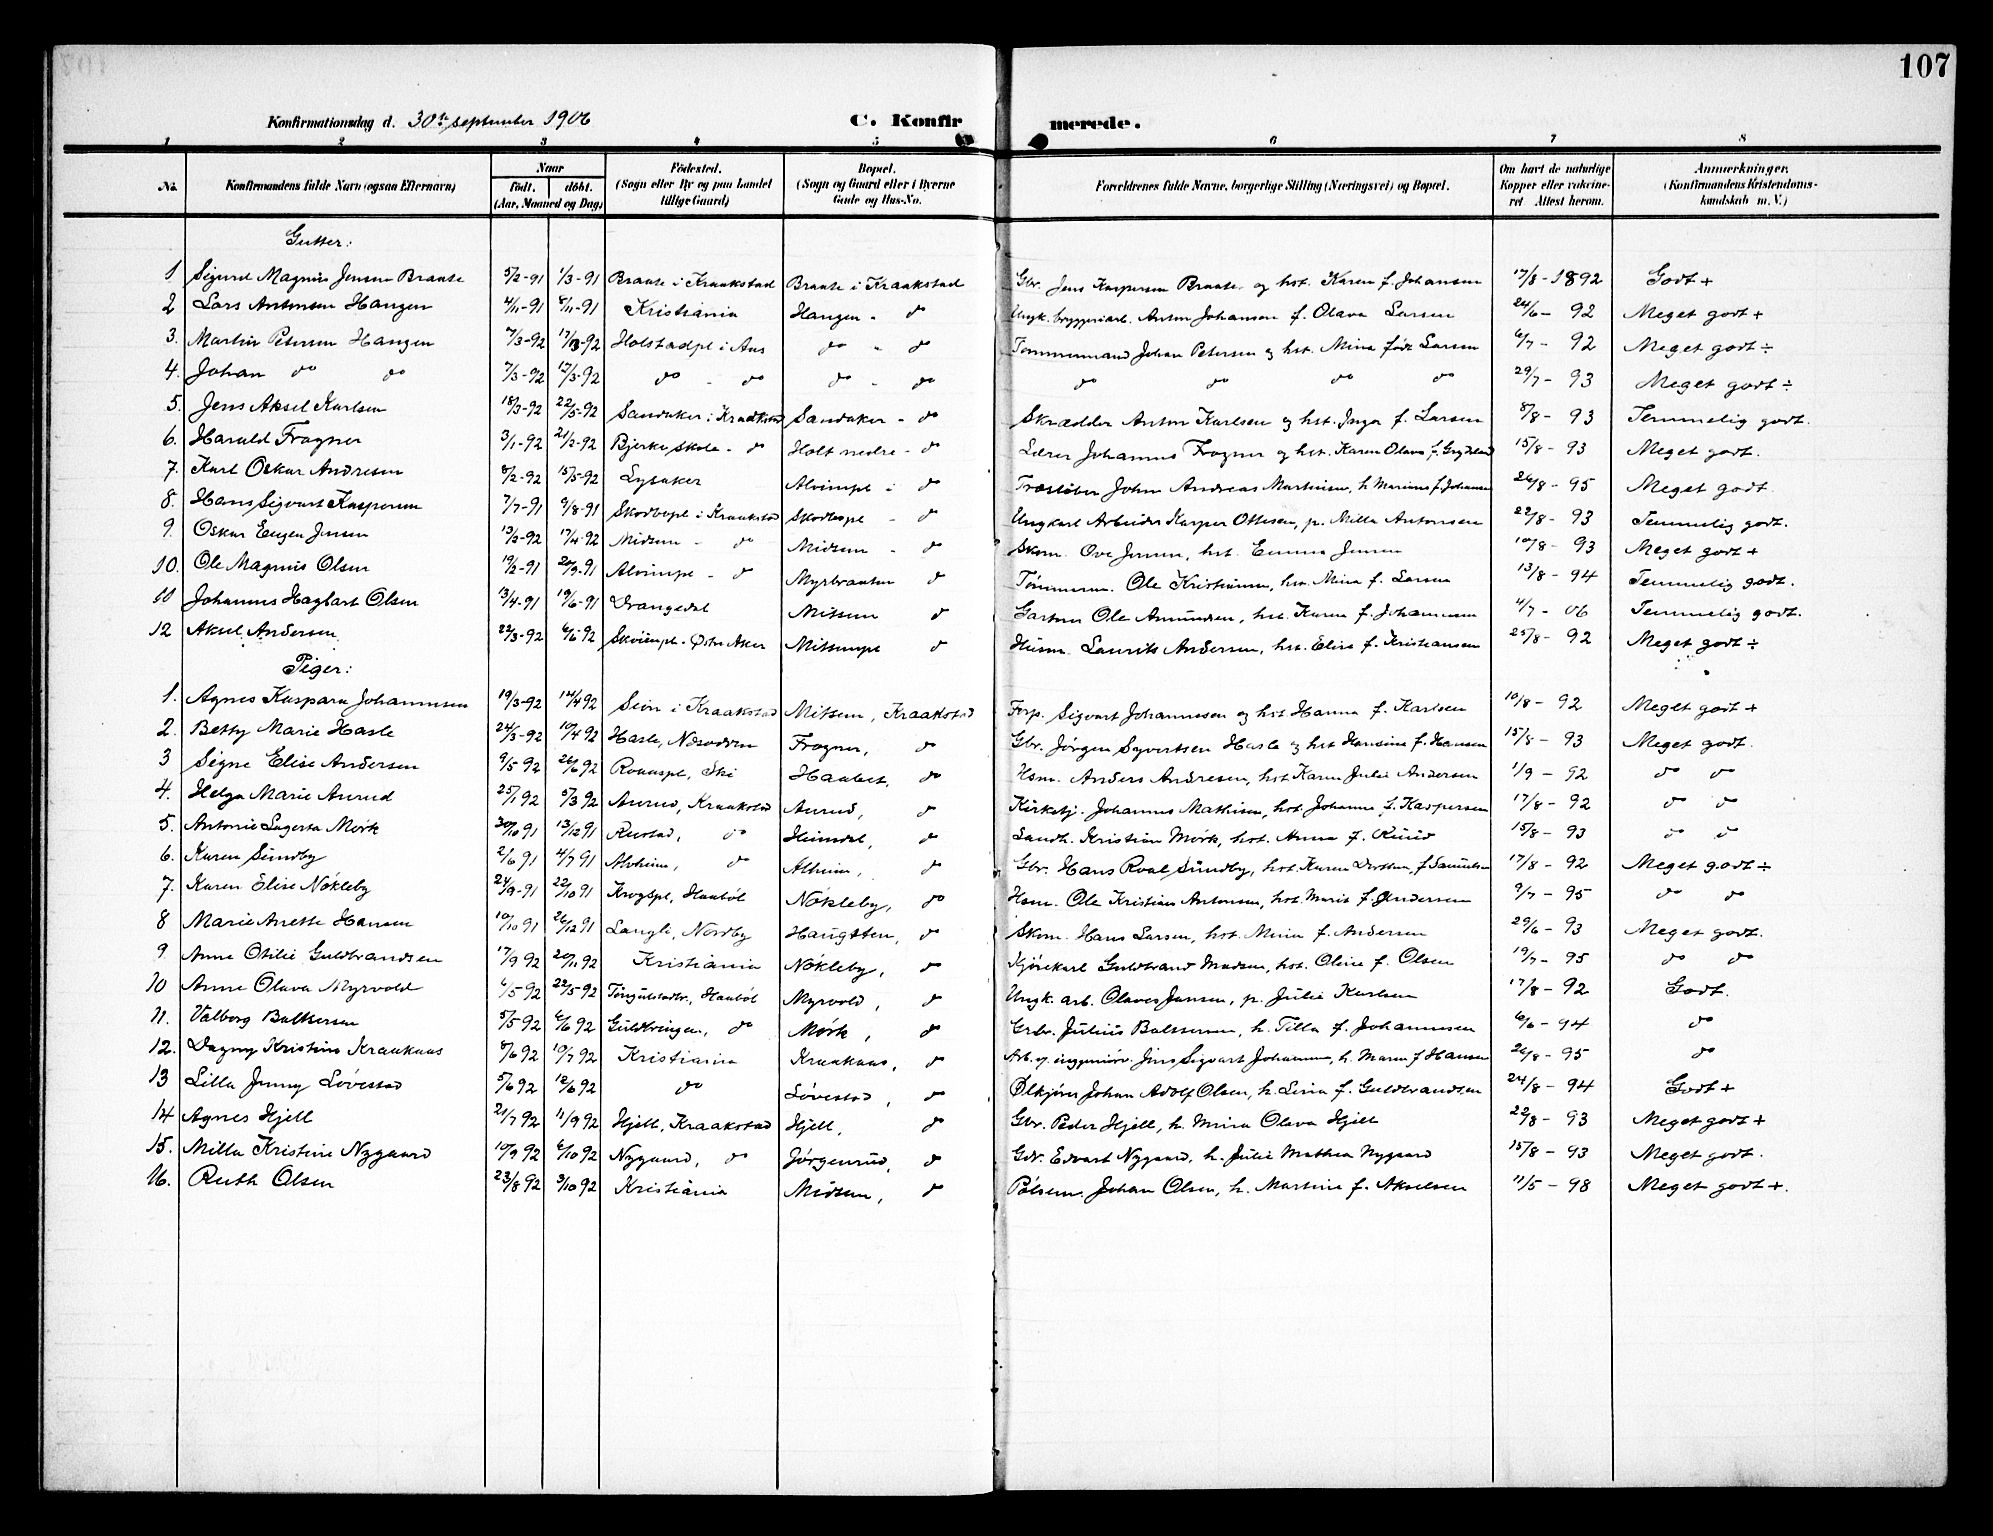 107
Konfirmationsdag d. 30te september 1906 C. Konfirmerede.
1 2 3 4 5 6 7 8
No. Konfirmandens fulde Navn (ogsaa Efternavn) Naar födt. döbt. (Aar, Maaned og Dag) Födested. (Sogn eller By og paa Landet tillige Gaard) Bopæl. (Sogn og Gaard eller i Byerne Gade og Hus-No. Forældrenes fulde Navne, borgerlige Stilling (Næringsvei) og Bopæl. Om havt de naturlige Kopper eller vakcineret Attest herom. Anmerkninger. (Konfirmandens Kristendomskundskab m. V.)
Gutter:
1 Sigurd Magnus Jensen Braate 5/2-91 1/3-91 Braate i Kraakstad Braate i Kraakstad Gbr. Jens Kaspersen Braate og hst. Karen f. Johansen 17/8-1892 Godt +
2 Lars Antonsen Haugen 4/11-91 8/11-91 Kristiania Haugen - do Ungk. bryggeriarb. Anton Johansen f. Olava Larsen 24/6-92 Meget godt +
3. Martin Petersen Haugen 7/3-92 17/3-92 Holstadpl i Aas do - do Tømmermand Johan Petersen og hst. Mina født Larsen 6/7-92 Meget godt ÷
4. Johan do do 7/3-92 17/3-92 do - do do - do do do do do 29/7-93 Meget godt ÷
5. Jens Aksel Karlsen 18/3-92 22/5-92 Sandaker i Kraakstad Sandaker - do Skrædder Anton Karlsen og hst. Inga f. Larsen 8/8-93 Temmelig godt.
6. Harald Frogner 3/1-92 21/2-92 Bjerke skole - do Holt nedre - do Lærer Johannes Frogner og hst. Karen Olava f. 15/8-93 Meget godt.
7. Karl Oskar Andresen 8/2-92 15/5-92 Lysaker Alvimpl i do Træsliber John Andreas Martinsen, h. f. Johansen 26/8-95 Meget godt.
8. Hans Sigvart Kaspersen 7/7-91 9/8-91 Skodbopl i Kraakstad Skodbopl - do Ungkarl Arbeider Kasper Ottesen, p. Milla Antonsen 22/8-93 Temmelig godt.
9. Oskar Eugen Jensen 13/2-92 17/4-92 Midsem - do Midsem - do Skom. Ove Jensen, hst. Emma Jensen 10/8-93 Meget godt +
10. Ole Magnus Olsen 19/2-91 20/3-91 Alvimpl - do Myrbraaten do Tömmerm. Ole Kristiansen, hst. Mina f. Larsen 13/8-94 Temmelig godt.
11 Johannes Hagbart Olsen 13/4-91 19/6-91 Drangedal Mitsem do Gartner Ole Amundsen, hst. Karen f. Johannesen 4/7-06 Temmelig godt.
12 Aksel Andersen 22/3-92 6/6-92 Skøienpl. Østre Aker Mitsempl do Husm. Laurits Andersen, hst. Elise f. Kristiansen 25/8-92 Meget godt ÷
Piger:
1. Agnes Kaspara Johannesen 19/3-92 14/4 92 Seim i Kraakstad Mitsem, Kraakstad Forp. Sigvart Johannesen og hst Hanna f. Karlsen 10/8-92 Meget godt +
2. Betty Marie Hasle 24/3-92 10/4 92 Hasle, Nesodden Frogner, do Gbr. Jørgen Syvertsen Hasle og hst Hansine f. Hansen 15/8-93 Meget godt.
3 Signe Elise Andersen 9/5 92 26/6 92 Roaaspl, Ski Haabet, do Hsm. Anders Andresen, hst Karen Julie Andersen 1/9-92 do do
4. Helga Marie Aurud 25/1 92 5/3 92 Aurud, Kraakstad Aurud, do Kirketj. Johannes Mathisen, hst Johanne f. Kaspersen 17/8-92 do do
5. Antonie Lagerta Mørk 30/10 91 13/12 91 Rustad, do Heimdal, do Landh. Kristian Mørk, hst. Anna f. Ruud 15/8-93 do do
6. Karen Sundby 2/6 91 4/7 91 Alvheim, do Alheim, do Gbr. Hans Roal Sundby, hst. Karen Dorthea f. Samuelsen 17/8-92 Meget godt ÷
7. Karen Elise Nökleby 24/9-91 22/10 91 Krogspl, Haabøl Nökleby, do Hsm. Ole Kristian Antonsen, hst. Marit f. Andersen 9/7-95 do do
8 Marie Anette Hansen 10/10 91 26/12 91 Langli, Nordby Haugtten, do Skom. Hans Larsen, hst. Mina f. Andersen 29/6-93 Meget godt.
9 Anne Otilie Guldbrandsen 17/9 92 20/11 92 Kristiania Nökleby, do Kjørekarl Guldbrand Madsen, hst. Oline f. Olsen 19/7-95 do do
10 Anne Olava Myrvold 6/5 92 22/5 92 Haabøl Myrvold, do Ungk. arb. Olaves Jansen, p. Julie Karlsen 17/8-92 Godt.
11. Valborg Baltsersen 5/5 92 6/6 92 Guldbringen, do Mørk, do Grbr. Julius Baltsersen, h. Tilla f. Johannessen 6/6-94 do
12. Dagny Kristine Kraakaas 8/6 92 10/7 92 Kristiania Kraakaas, do Jens Sigvart Johannsen, h. Maren f. Hansen 26/8-95 do
13 Lilla Jenny Løvestad 5/6 92 12/6 92 do Løvestad, do Ølkjører Johan Adolf Olsen, h. Lina f. Guldbrandsen 24/8-94 Godt +
14 Agnes Hjell 21/7 92 11/9 92 Hjell, Kraakstad Hjell, do Gbr. Peder Hjell, h. Mina Olava Hjell 22/8-93 Meget godt +
15. Milla Kristine Nygaard 10/9 92 6/10 92 Nygaard, do Jørgenrud, do Gdr. Edvart Nygaard, h. Julie Mathea Nygaard 15/8-93 Meget godt.
16. Ruth Olsen 23/8 92 3/10 92 Kristiania Midsem, do Pølsem. Johan Olsen, h. Martine f. Akselsen 11/5-98 Meget godt +.